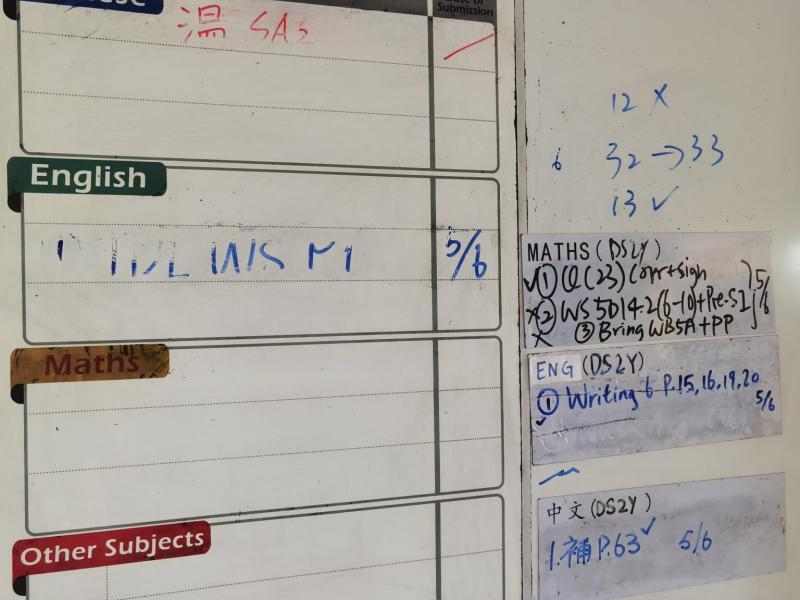 Submission
温 SA2
English
5/6
Maths
Other Subjects
12 X
6 32 → 33
13 ✓
MATHS (DS2Y)
✓① Q(23) Corr+sign
X② WS 5D14.2(6-10)+Pre-S1 5/6
X ③ Bring WB5A+PP
ENG (DS2Y)
① Writing 6 P.15,16,19,20
✓ 5/6
中文(DS2Y)
1.補P.63✓ 5/6